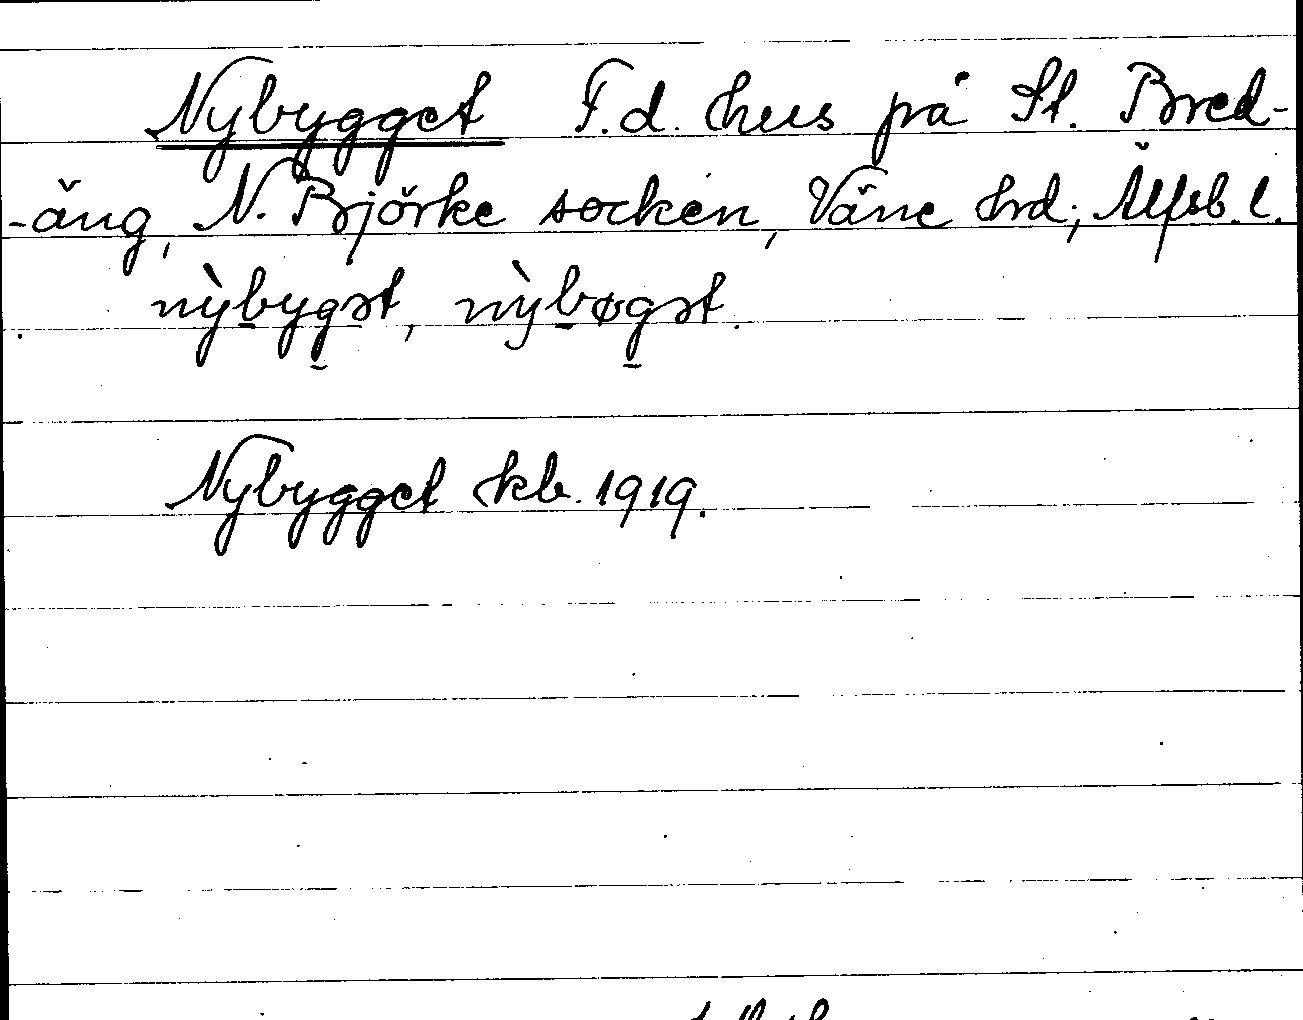 Nybygget F.d. hus på St. Bred-
-äng, N. Björke socken, Väne hrd; Älfsb. l.
nỳbygət, nỳbøgət.
Nybygget kb. 1919.